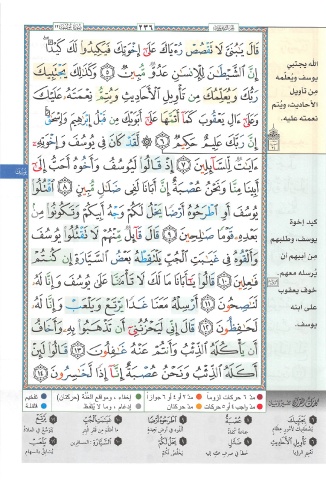 ٢٣٦
قَالَ يَبُنَىَّ لَا تَقْصُصْ رُءْيَاكَ عَلَىٰٓ إِخْوَتِكَ فَيَكِيدُوا۟ لَكَ كَيْدًا
إِنَّ ٱلشَّيْطَٰنَ لِلْإِنسَٰنِ عَدُوٌّ مُّبِينٌ ٥ وَكَذَٰلِكَ يَجْتَبِيكَ
رَبُّكَ وَيُعَلِّمُكَ مِن تَأْوِيلِ ٱلْأَحَادِيثِ وَيُتِمُّ نِعْمَتَهُۥ عَلَيْكَ
وَعَلَىٰٓ ءَالِ يَعْقُوبَ كَمَآ أَتَمَّهَا عَلَىٰٓ أَبَوَيْكَ مِن قَبْلُ إِبْرَٰهِيمَ وَإِسْحَٰقَ
إِنَّ رَبَّكَ عَلِيمٌ حَكِيمٌ ٦ لَّقَدْ كَانَ فِى يُوسُفَ وَإِخْوَتِهِۦٓ
ءَايَٰتٌ لِّلسَّآئِلِينَ ٧ إِذْ قَالُوا۟ لَيُوسُفُ وَأَخُوهُ أَحَبُّ إِلَىٰٓ
أَبِينَا مِنَّا وَنَحْنُ عُصْبَةٌ إِنَّ أَبَانَا لَفِى ضَلَٰلٍ مُّبِينٍ ٨ ٱقْتُلُوا۟
يُوسُفَ أَوِ ٱطْرَحُوهُ أَرْضًا يَخْلُ لَكُمْ وَجْهُ أَبِيكُمْ وَتَكُونُوا۟ مِنۢ
بَعْدِهِۦ قَوْمًا صَٰلِحِينَ ٩ قَالَ قَآئِلٌ مِّنْهُمْ لَا تَقْتُلُوا۟ يُوسُفَ
وَأَلْقُوهُ فِى غَيَٰبَتِ ٱلْجُبِّ يَلْتَقِطْهُ بَعْضُ ٱلسَّيَّارَةِ إِن كُنتُمْ
فَٰعِلِينَ ١٠ قَالُوا۟ يَٰٓأَبَانَا مَا لَكَ لَا تَأْمَ۫نَّا عَلَىٰ يُوسُفَ وَإِنَّا لَهُۥ
لَنَٰصِحُونَ ١١ أَرْسِلْهُ مَعَنَا غَدًا يَرْتَعْ وَيَلْعَبْ وَإِنَّا لَهُۥ
لَحَٰفِظُونَ ١٢ قَالَ إِنِّى لَيَحْزُنُنِىٓ أَن تَذْهَبُوا۟ بِهِۦ وَأَخَافُ
أَن يَأْكُلَهُ ٱلذِّئْبُ وَأَنتُمْ عَنْهُ غَٰفِلُونَ ١٣ قَالُوا۟ لَئِنْ
أَكَلَهُ ٱلذِّئْبُ وَنَحْنُ عُصْبَةٌ إِنَّآ إِذًا لَّخَٰسِرُونَ ١٤
الله يجتبي
يوسف ويُعلّمه
من تأويل
الأحاديث، ويُتم
نعمته عليه.
كيد إخوة
يوسف، وطلبهم
من أبيهم أن
يُرسله معهم،
خوف يعقوب
على ابنه
يوسف.
مد ٦ حركات لزوماً مد٢ أو ٤ أو ٦ جوازاً إخفاء، ومواقع الغُنَّة (حركتان) تفخيم
مد واجب ٤ أو ٥ حركات مد حركتان إدغام، وما لا يُلفظ قلقلة